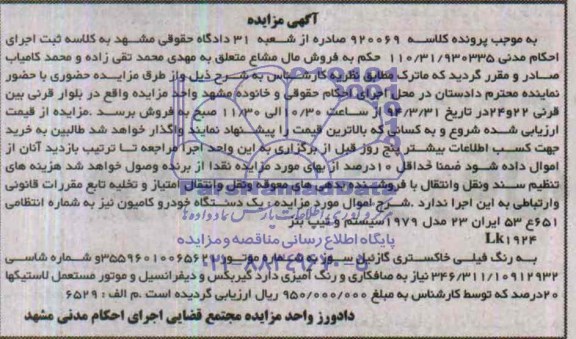 آگهی مزایده
به موجب پرونده کلاسه ۹۲۰۰۶۹ صادره از شعبه ۳۱ دادگاه حقوقی مشهد به کلاسه ثبت اجرای
احکام مدنی ۱۱۰/۳۱/۹۳۰۳۳۵ حکم به فروش مال مشاع متعلق به مهدی محمد تقی زاده و محمد کامیاب
صادر و مقرر گردید که ماترک مطابق نظریه کارشناس به شرح ذیل واز طرق مزایده حضوری با حضور
نماینده محترم دادستان در محل اجرای احکام حقوقی و خانوده مشهد واحد مزایده واقع در بلوار قرنی بین
قرنی ۲۲و۲۴در تاریخ ۹۴/۳/۳۱ از ساعت ۱۰/۳۰ الی ۱۱/۳۰ صبح به فروش برسد .مزایده از قیمت
ارزیابی شده شروع و به کسانی که بالاترین قیمت را پیشنهاد نمایند واگذار خواهد شد طالبین به خرید
جهت کسب اطلاعات بیشتر پنج روز قبل از برگزاری به این واحد اجرا مراجعه تا ترتیب بازدید آنان از
اموال داده شود ضمنا حداقل ۱۰درصد از بهای مورد مزایده نقدا از برنده وصول خواهد شد هزینه های
تنظیم سند ونقل وانتقال با فروشنده بدهی های معوقه ونقل وانتقال امتیاز و تخلیه تابع مقررات قانونی
وارتباطی به این اجرا ندارد .شرح اموال مورد مزایده:یک دستگاه خودرو کامیون نیز به شماره انتظامی
۶۵۱ع ۵۳ ایران ۲۳ مدل ۱۹۷۹سیستم و تیپ بنز
پایگاه اطلاع رسانی مناقصه و مزایده
Lk۱۹۲۴
به رنگ فیلی خاکستری گازئیل سوز به شماره موتور و شماره شاسی
۳۴۶/۳۱۱/۱۰۹۱۲۹۳۲ نیاز به صافکاری و رنگ آمیزی دارد گیربکس و دیفرانسیل و موتور مستعمل لاستیکها
۲۰درصد که توسط کارشناس به مبلغ ۹۵۰/۰۰۰/۰۰۰ ریال ارزیابی گردیده است .م الف : ۶۵۲۹
دادورز واحد مزایده مجتمع قضایی اجرای احکام مدنی مشهد